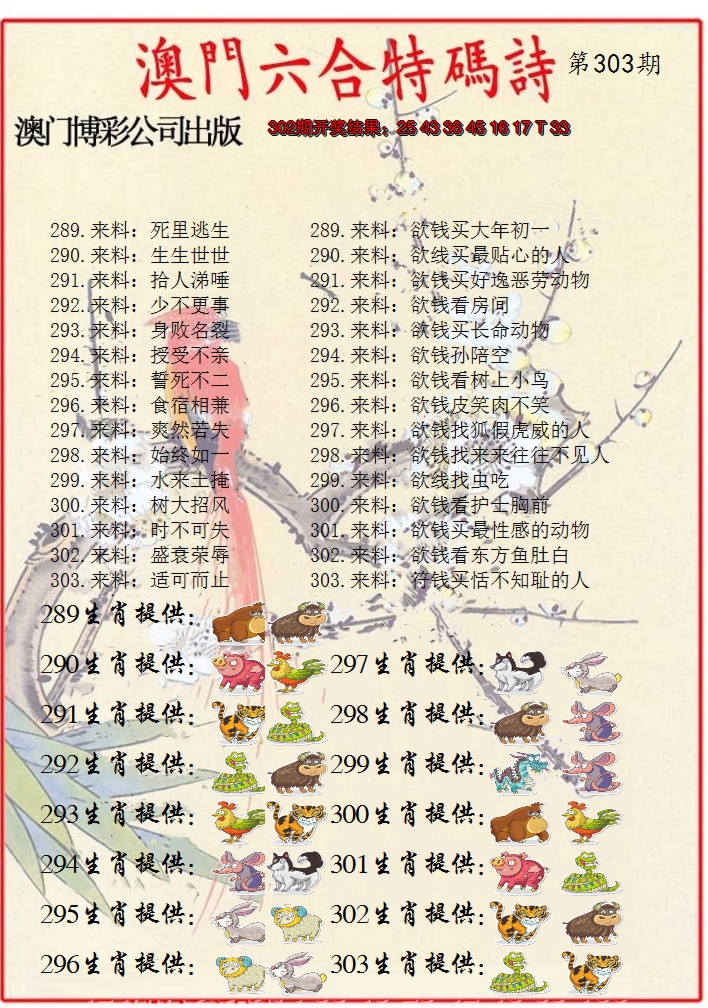 澳門六合特碼詩 第303期
澳门博彩公司出版 302期开奖结果：25 43 36 45 16 17 T 33
289.来料：死里逃生 289.来料：欲钱买大年初一
290.来料：生生世世 290.来料：欲线买最贴心的人
291.来料：拾人涕唾 291.来料：欲钱买好逸恶劳动物
292.来料：少不更事 292.来料：欲钱看房间
293.来料：身败名裂 293.来料：欲钱买长命动物
294.来料：授受不亲 294.来料：欲钱孙陪空
295.来料：誓死不二 295.来料：欲钱看树上小鸟
296.来料：食宿相兼 296.来料：欲钱皮笑肉不笑
297.来料：爽然若失 297.来料：欲钱找狐假虎威的人
298.来料：始终如一 298.来料：欲钱找来来往往不见人
299.来料：水来土掩 299.来料：欲线找虫吃
300.来料：树大招风 300.来料：欲钱看护士胸前
301.来料：时不可失 301.来料：欲钱买最性感的动物
302.来料：盛衰荣辱 302.来料：欲钱看东方鱼肚白
303.来料：适可而止 303.来料：符钱买恬不知耻的人
289生肖提供：
290生肖提供： 297生肖提供：
291生肖提供： 298生肖提供：
292生肖提供： 299生肖提供：
293生肖提供： 300生肖提供：
294生肖提供： 301生肖提供：
295生肖提供： 302生肖提供：
296生肖提供： 303生肖提供：